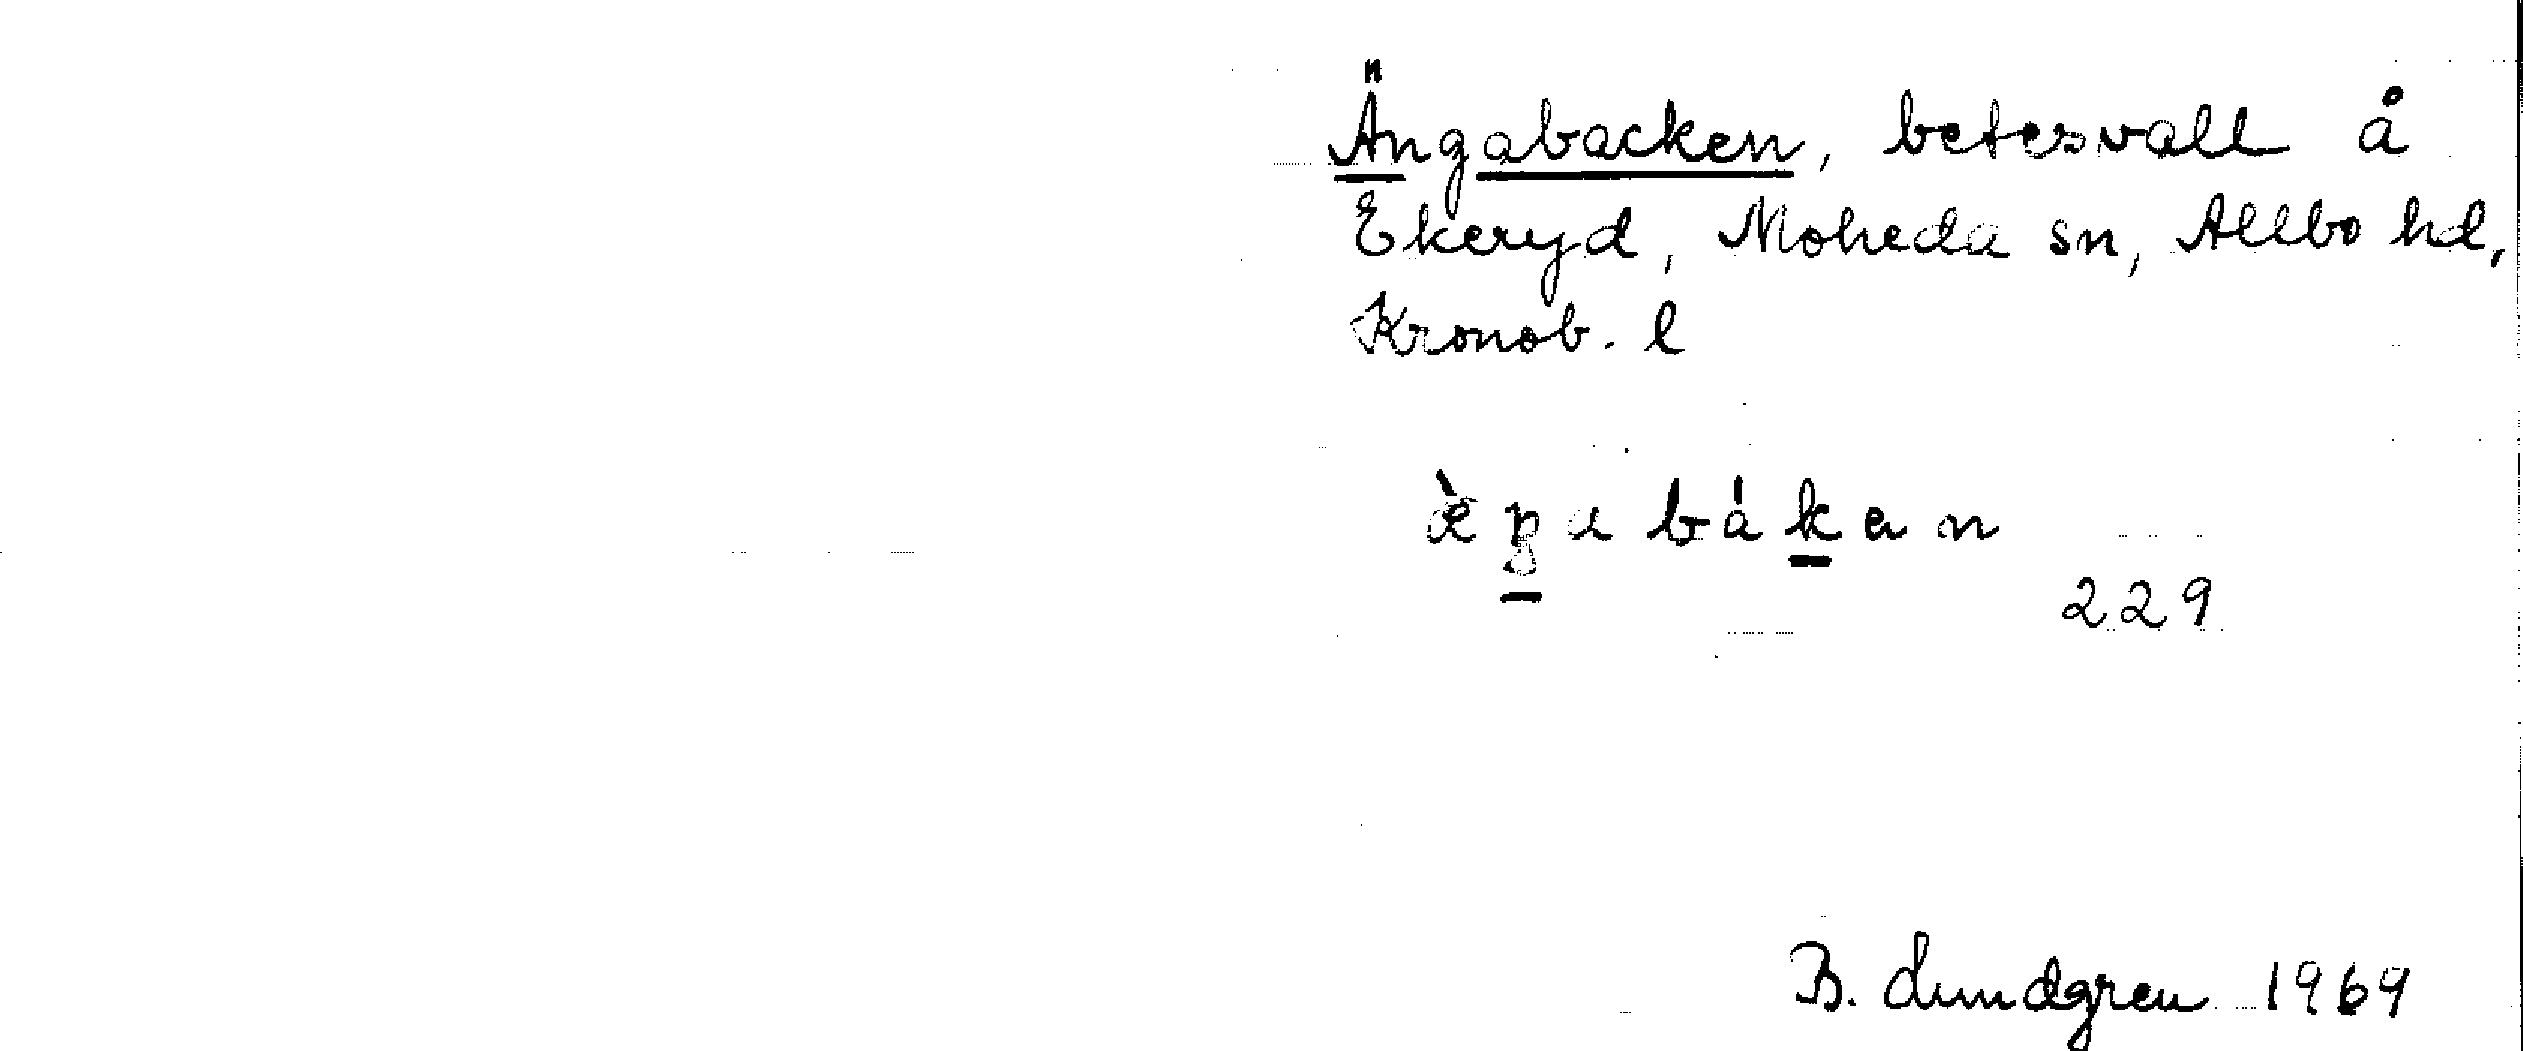 Ängabacken, betesvall å
Ekeryd, Moheda sn, Allbo hd,
Kronob. l
229
B. Lundgren 1969